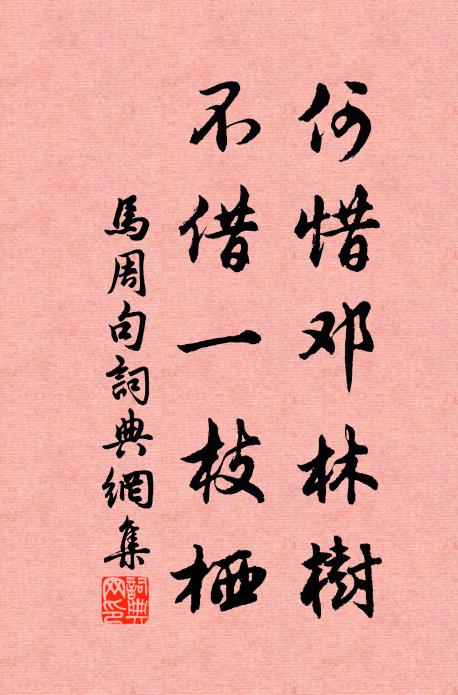 何惜邓林樹
不借一枝栖
馬周句詞典網集
詞典网印